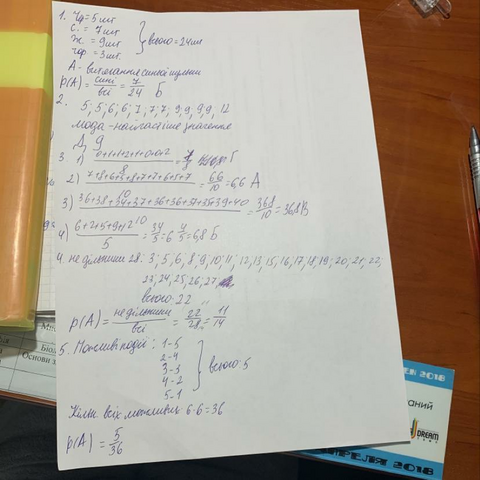 1. Чд = 5 шт
с. = 7 шт
ж = 9 шт
чор = 3 шт.
} всього = 24 шт
А - витягання синьої кульки
p(A) = сині/всі = 7/24 Б
2. 5; 5; 6; 6; 7; 7; 7; 9; 9; 9; 9; 12
мода - найчастіше значення
Д 9
3. 1) 0+1+1+2+1+0+0+2 / 8 = 7/8 Г
2) 7+8+6+5+8+7+7+6+5+7 / 10 = 66/10 = 6,6 А
3) 36+38+34+37+36+36+37+35+39+40 / 10 = 368/10 = 36,8 В
4) 6+2+5+9+12 / 5 = 34/5 = 6 4/5 = 6,8 Б
4. не дільники 28: 3; 5, 6, 8; 9, 10, 11; 12, 13, 15, 16, 17, 18, 19; 20, 21, 22;
23; 24, 25, 26, 27
всього: 22
p(A) = не дільники/всі = 22/28 = 11/14
5. Можливі події: 1-5
2-4
3-3
4-2
5-1
} всього: 5
Кільк всіх можливих 6·6 = 36
p(A) = 5/36
2018
DREAM
АПРЕЛЯ 2018